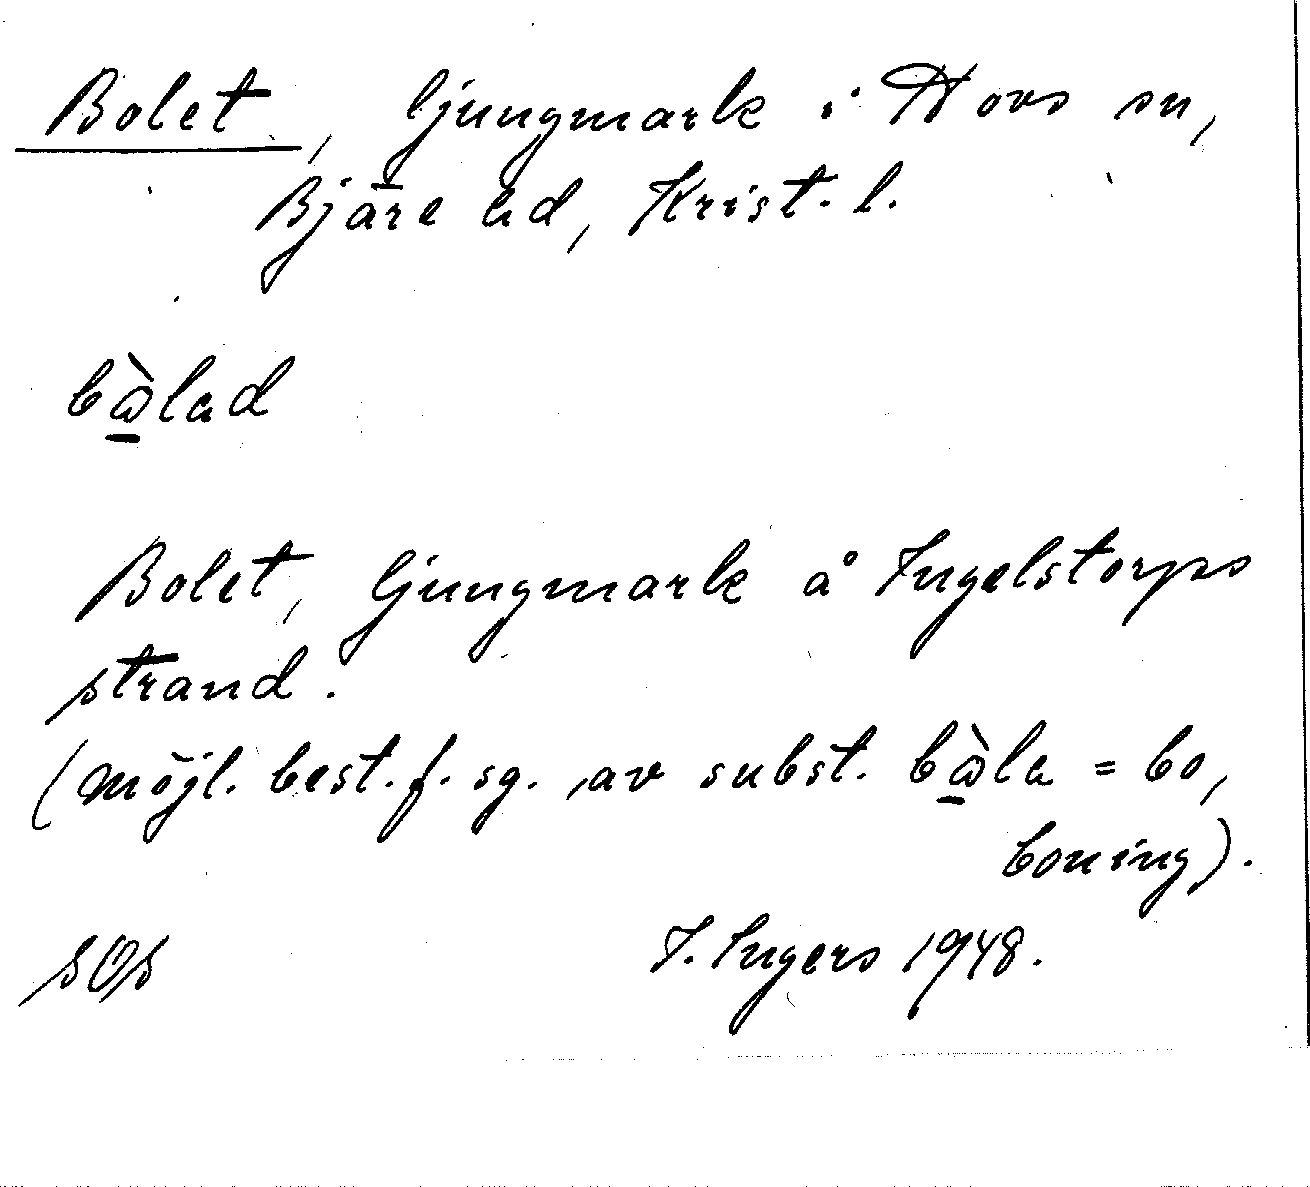 Bolet, ljungmark i Hovs sn,
Bjäre hd, Krist. l.
bὼ̱lad
Bolet, ljungmark å Ingelstorps
strand.
(möjl. best. f. sg. av subst. bὼ̱la = bo,
boning).
SOS I. Ingers 1948.